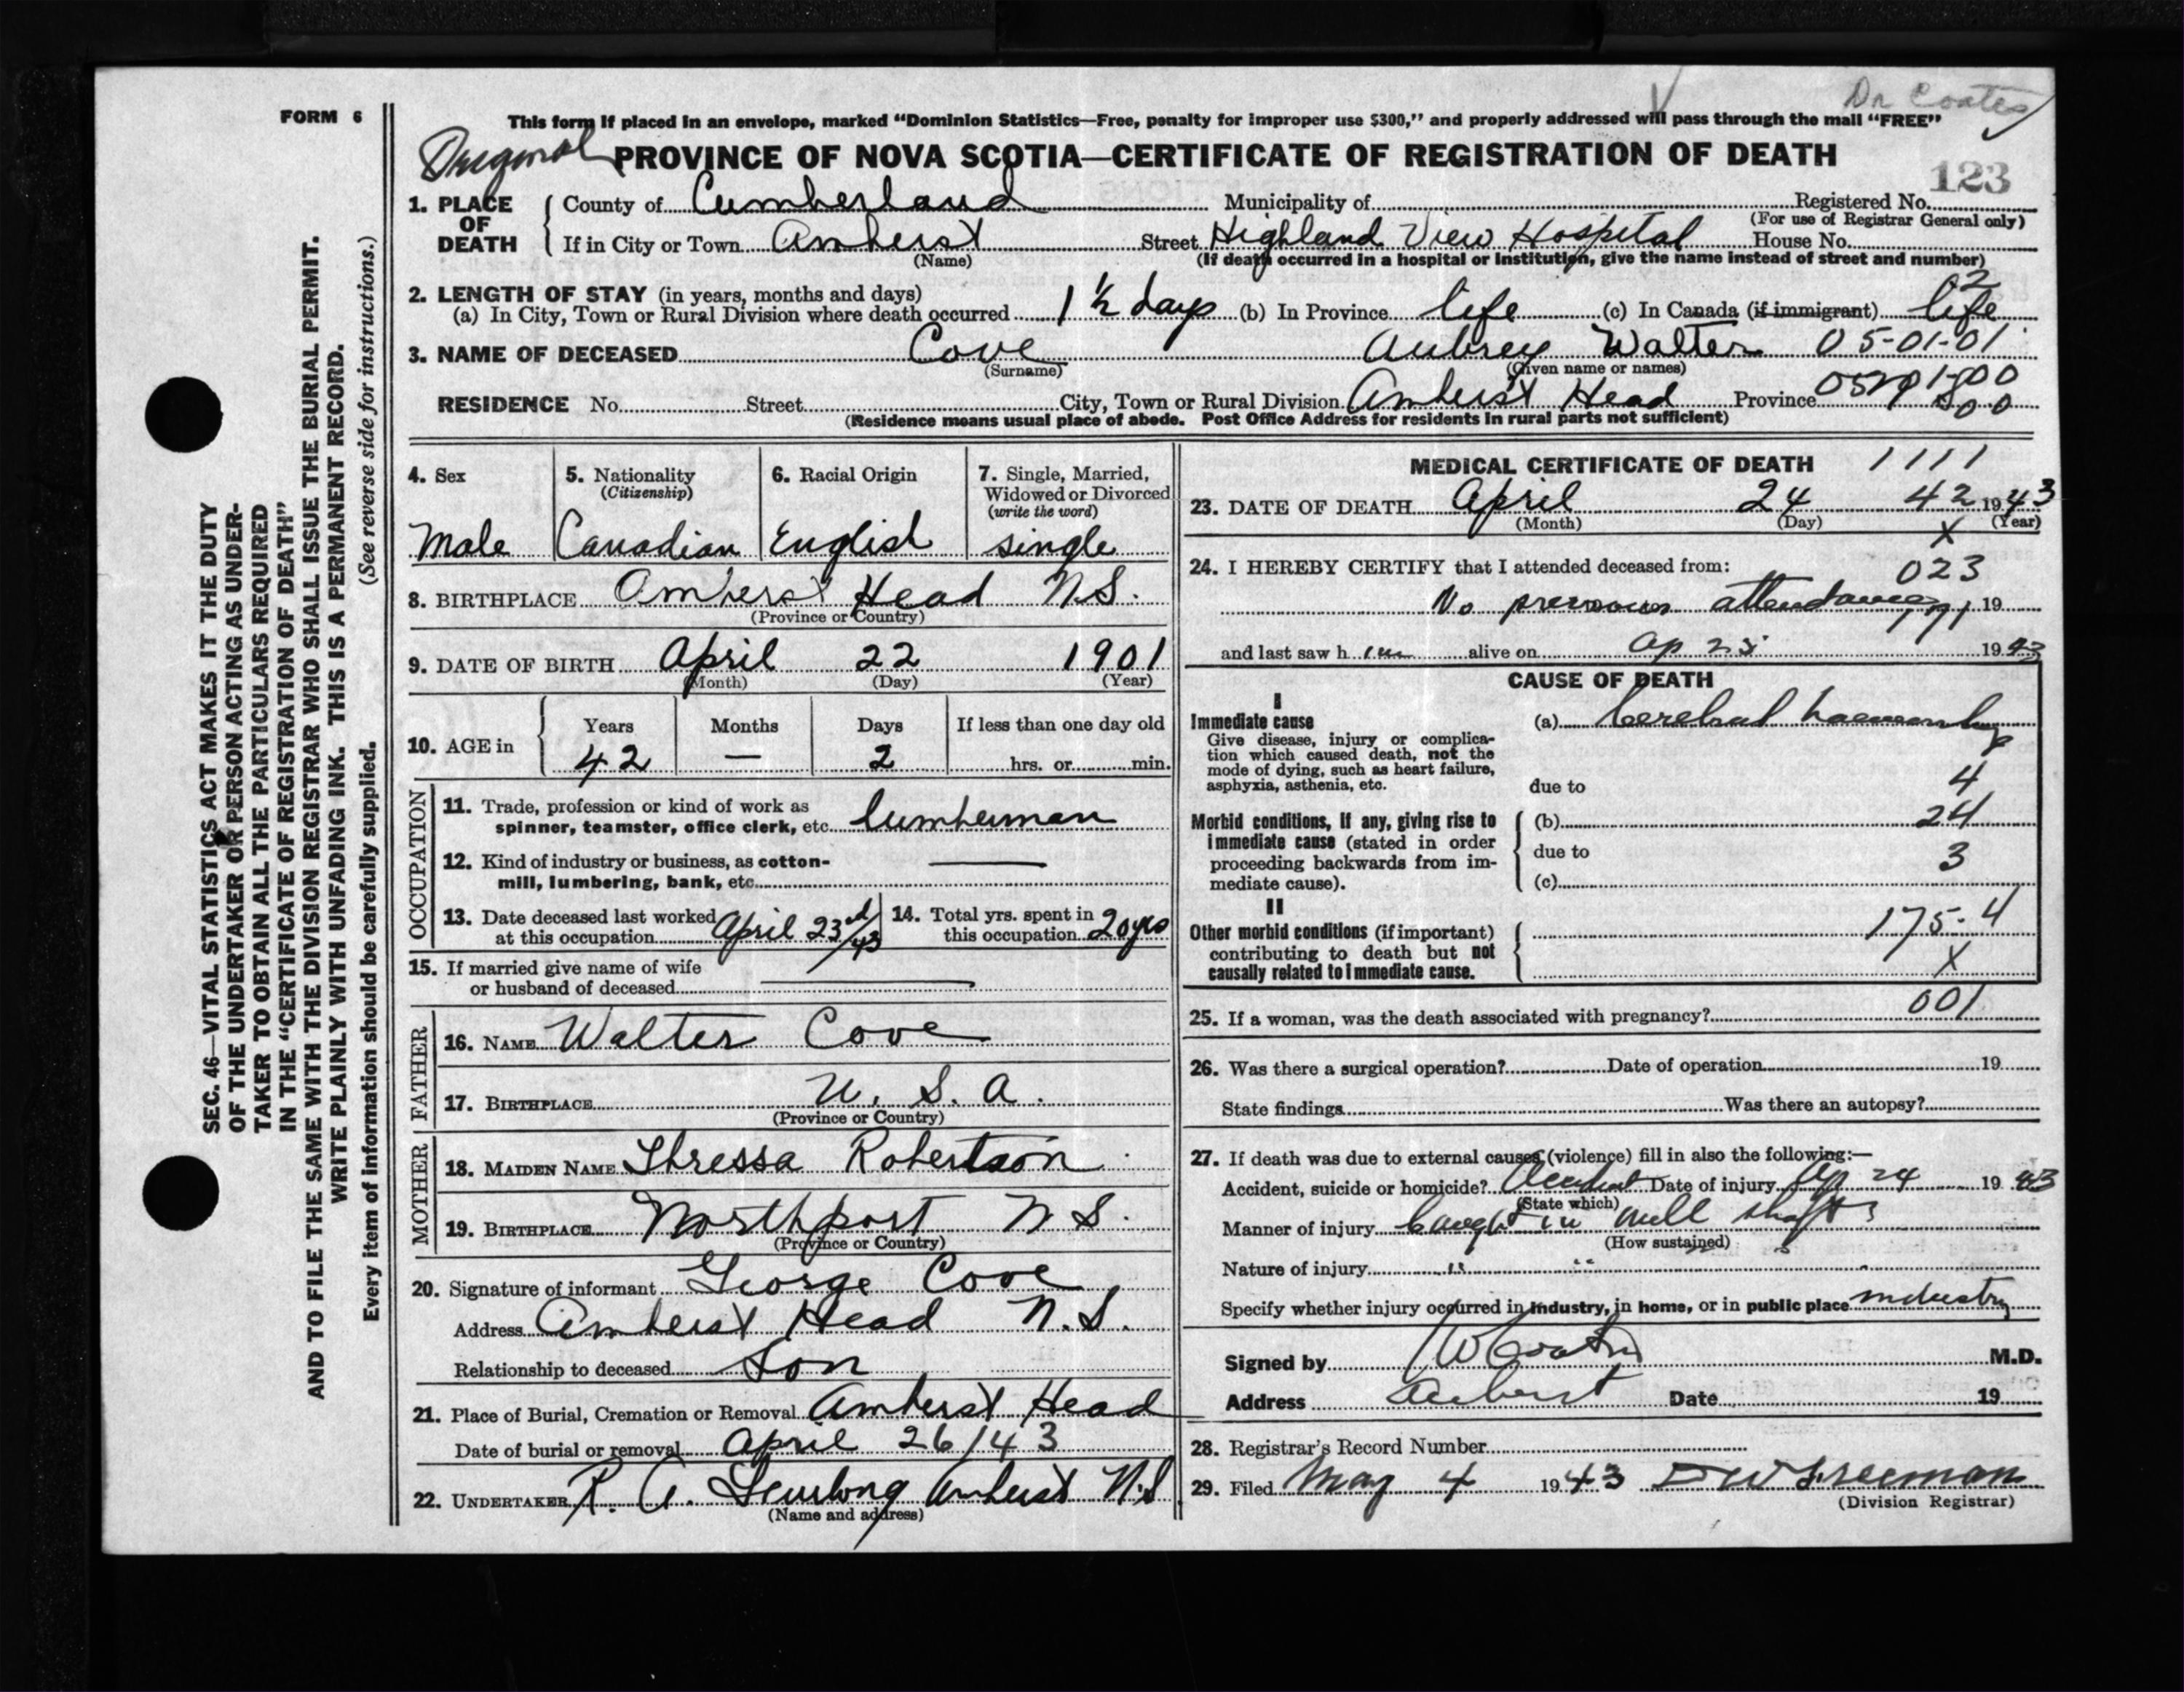 Dr Coates
FORM 6
This form if placed in an envelope, marked "Dominion Statistics—Free, penalty for improper use $300," and properly addressed will pass through the mail "FREE"
Original PROVINCE OF NOVA SCOTIA—CERTIFICATE OF REGISTRATION OF DEATH
123
1. PLACE OF DEATH
County of Cumberland Municipality of Registered No.
(For use of Registrar General only)
If in City or Town Amherst Street Highland View Hospital House No.
(Name) (If death occurred in a hospital or institution, give the name instead of street and number)
2. LENGTH OF STAY (in years, months and days) 02
(a) In City, Town or Rural Division where death occurred 1 ½ days (b) In Province life (c) In Canada (if immigrant) life
3. NAME OF DECEASED Cove Aubrey Walter 05-01-01
(Surname) (Given name or names)
RESIDENCE No. Street City, Town or Rural Division Amherst Head Province
00
(Residence means usual place of abode. Post Office Address for residents in rural parts not sufficient)
4. Sex
Male
5. Nationality
(Citizenship)
Canadian
6. Racial Origin
English
7. Single, Married,
Widowed or Divorced
(write the word)
single
8. BIRTHPLACE Amherst Head N.S.
(Province or Country)
9. DATE OF BIRTH April 22 1901
(Month) (Day) (Year)
10. AGE in
Years Months Days If less than one day old
42 — 2 hrs. or min.
OCCUPATION
11. Trade, profession or kind of work as
spinner, teamster, office clerk, etc. lumberman
12. Kind of industry or business, as cotton-
mill, lumbering, bank, etc. —
13. Date deceased last worked
at this occupation April 23rd/43
14. Total yrs. spent in
this occupation 20 yrs
15. If married give name of wife
or husband of deceased —
FATHER
16. NAME Walter Cove
17. BIRTHPLACE U. S. A.
(Province or Country)
MOTHER
18. MAIDEN NAME Thressa Robertson
19. BIRTHPLACE Northport N S.
(Province or Country)
20. Signature of informant George Cove
Address Amherst Head N.S.
Relationship to deceased Son
21. Place of Burial, Cremation or Removal Amherst Head
Date of burial or removal April 26/43
22. UNDERTAKER R. A. Amherst N.S
(Name and address)
MEDICAL CERTIFICATE OF DEATH 1111
23. DATE OF DEATH April 24 42 1943
(Month) (Day) (Year)
X
24. I HEREBY CERTIFY that I attended deceased from: 023
No previous attendance 191 19
and last saw him alive on Ap 23 1943
CAUSE OF DEATH
I
Immediate cause
Give disease, injury or complica-
tion which caused death, not the
mode of dying, such as heart failure,
asphyxia, asthenia, etc.
(a) Cerebral haemorrhage
due to 4
Morbid conditions, if any, giving rise to
immediate cause (stated in order
proceeding backwards from im-
mediate cause).
(b) 24
due to 3
(c)
II
Other morbid conditions (if important)
contributing to death but not
causally related to immediate cause.
175-4
X
25. If a woman, was the death associated with pregnancy? 001
26. Was there a surgical operation? Date of operation 19
State findings Was there an autopsy?
27. If death was due to external causes (violence) fill in also the following:—
Accident, suicide or homicide? Accident Date of injury Ap 24 1943
(State which)
Manner of injury Caught in mill shafts
(How sustained)
Nature of injury " "
Specify whether injury occurred in industry, in home, or in public place industry
Signed by Coates M.D.
Address Amherst Date 19
28. Registrar's Record Number
29. Filed May 4 1943 D W Freeman
(Division Registrar)
SEC. 46—VITAL STATISTICS ACT MAKES IT THE DUTY
OF THE UNDERTAKER OR PERSON ACTING AS UNDER-
TAKER TO OBTAIN ALL THE PARTICULARS REQUIRED
IN THE "CERTIFICATE OF REGISTRATION OF DEATH"
AND TO FILE THE SAME WITH THE DIVISION REGISTRAR WHO SHALL ISSUE THE BURIAL PERMIT.
WRITE PLAINLY WITH UNFADING INK. THIS IS A PERMANENT RECORD.
Every item of information should be carefully supplied. (See reverse side for instructions.)